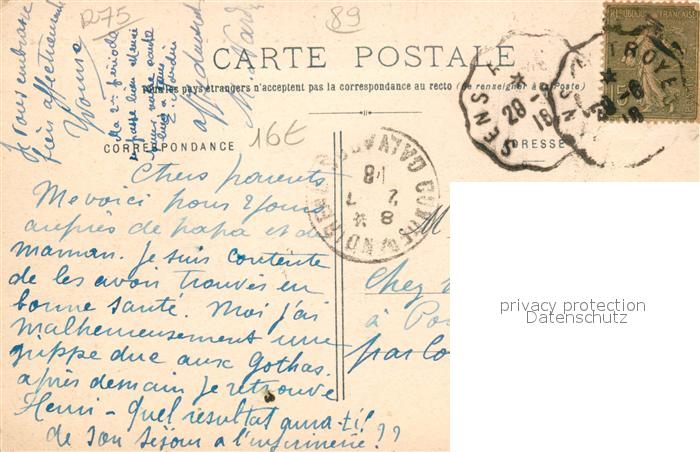 R75
89
CARTE POSTALE
Tous les pays étrangers n'acceptent pas la correspondance au recto (Se renseigner à la Poste)
CORRESPONDANCE
ADRESSE
16t
RÉPUBLIQUE FRANÇAISE
15
SENS
TROYE
28
18
18
2 7
8 *
Chers parents
Me voici pour 2 jours
auprès de papa et de
maman. Je suis contente
de les avoir trouvés en
bonne santé. Moi j'ai
malheureusement une
grippe due aux Gothas.
après demain je retrouve
Henri - Quel résultat aura-t-il
de son séjour a l'infirmerie ??
Je vous embrasse
bien affectueusement
Yvonne
Ma 2e période
se passe bien
affectueux
M
Chez
à Po
par Co
privacy protection
Datenschutz